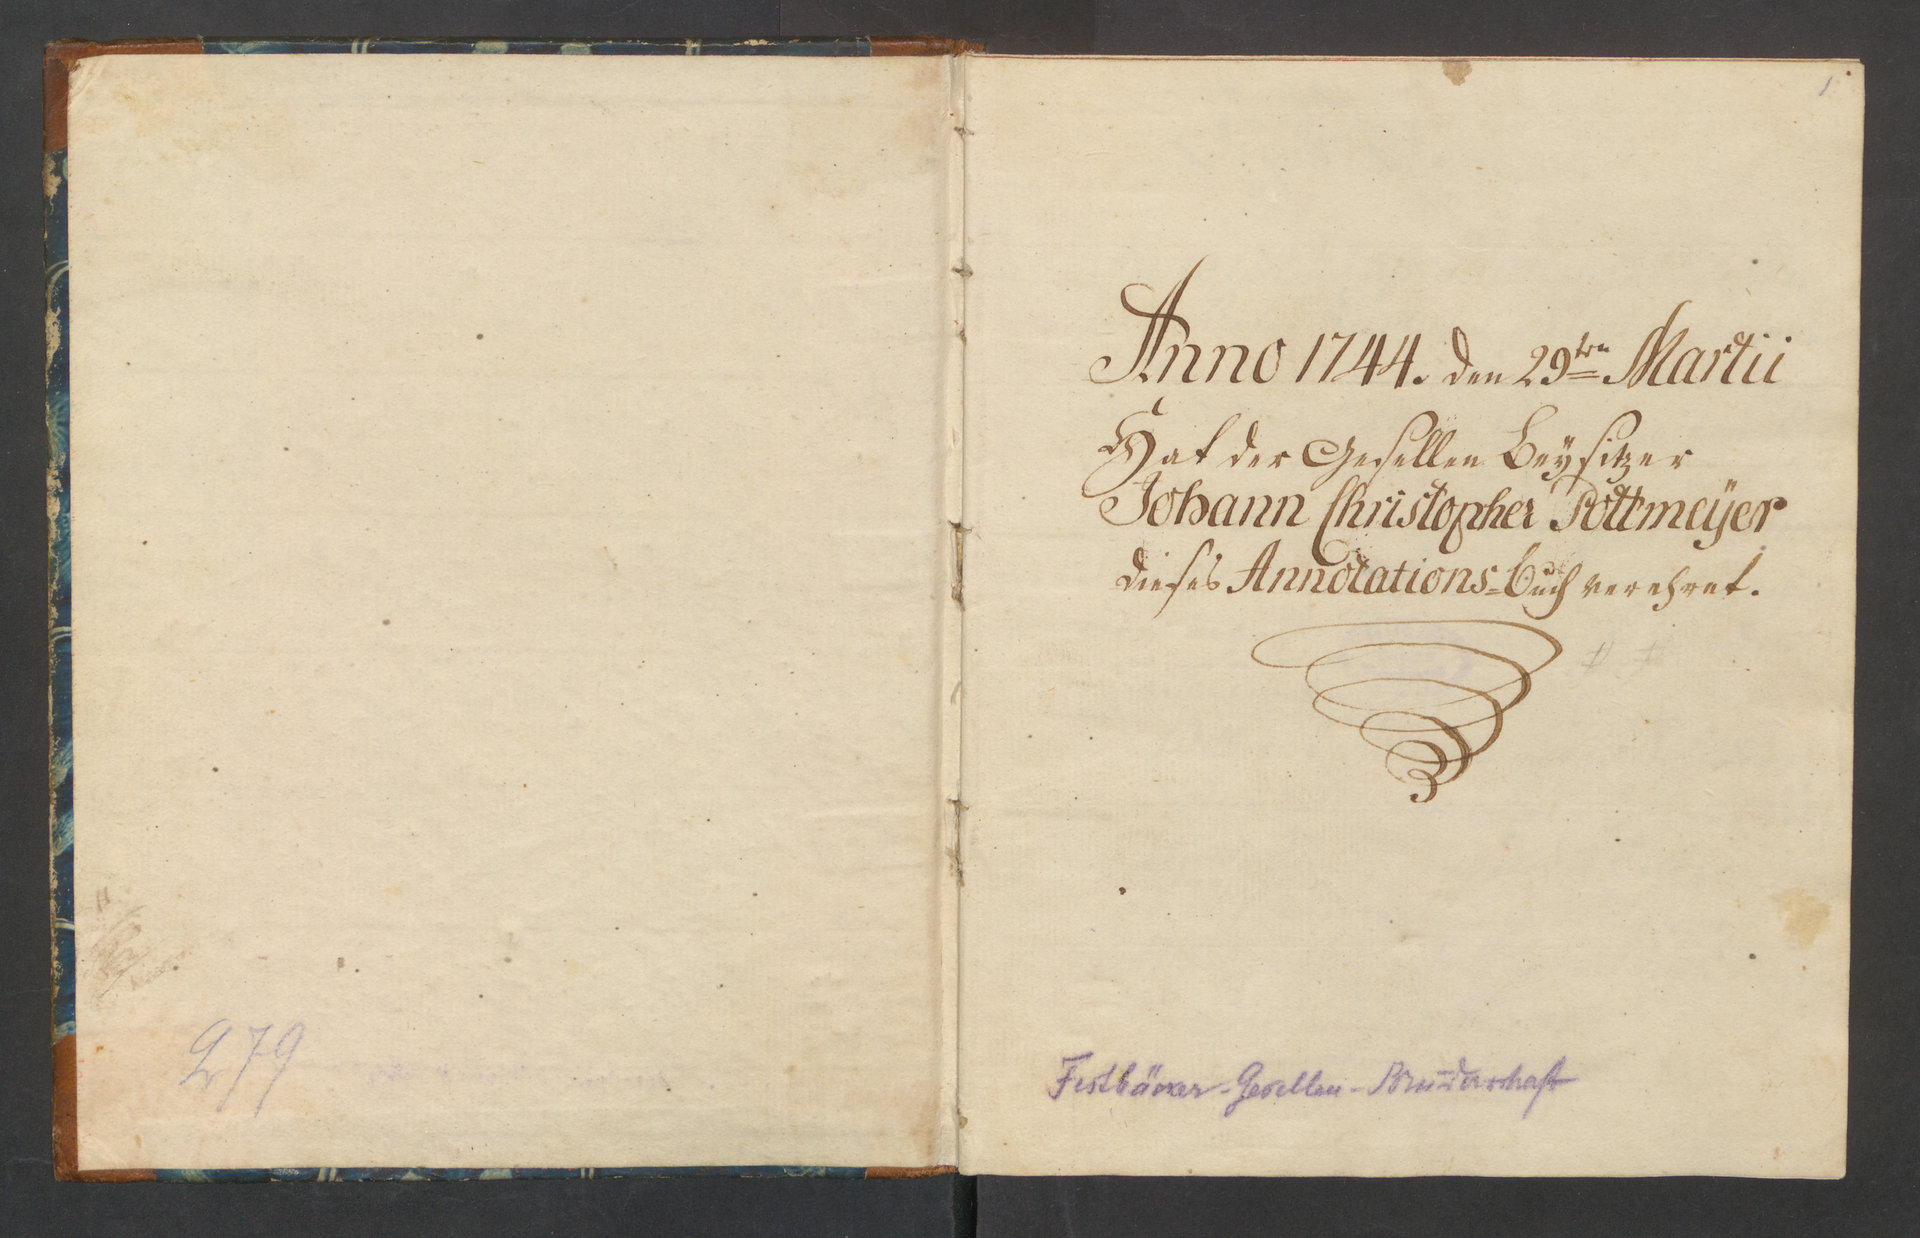 279
1
Anno 1744. den 29ten Martii
Hat der Gesellen Beysitzer
Johann Christopher Pottmeÿer
dieses Annotations=buch verehret.
Festbäcker-Gesellen-Bruderschaft